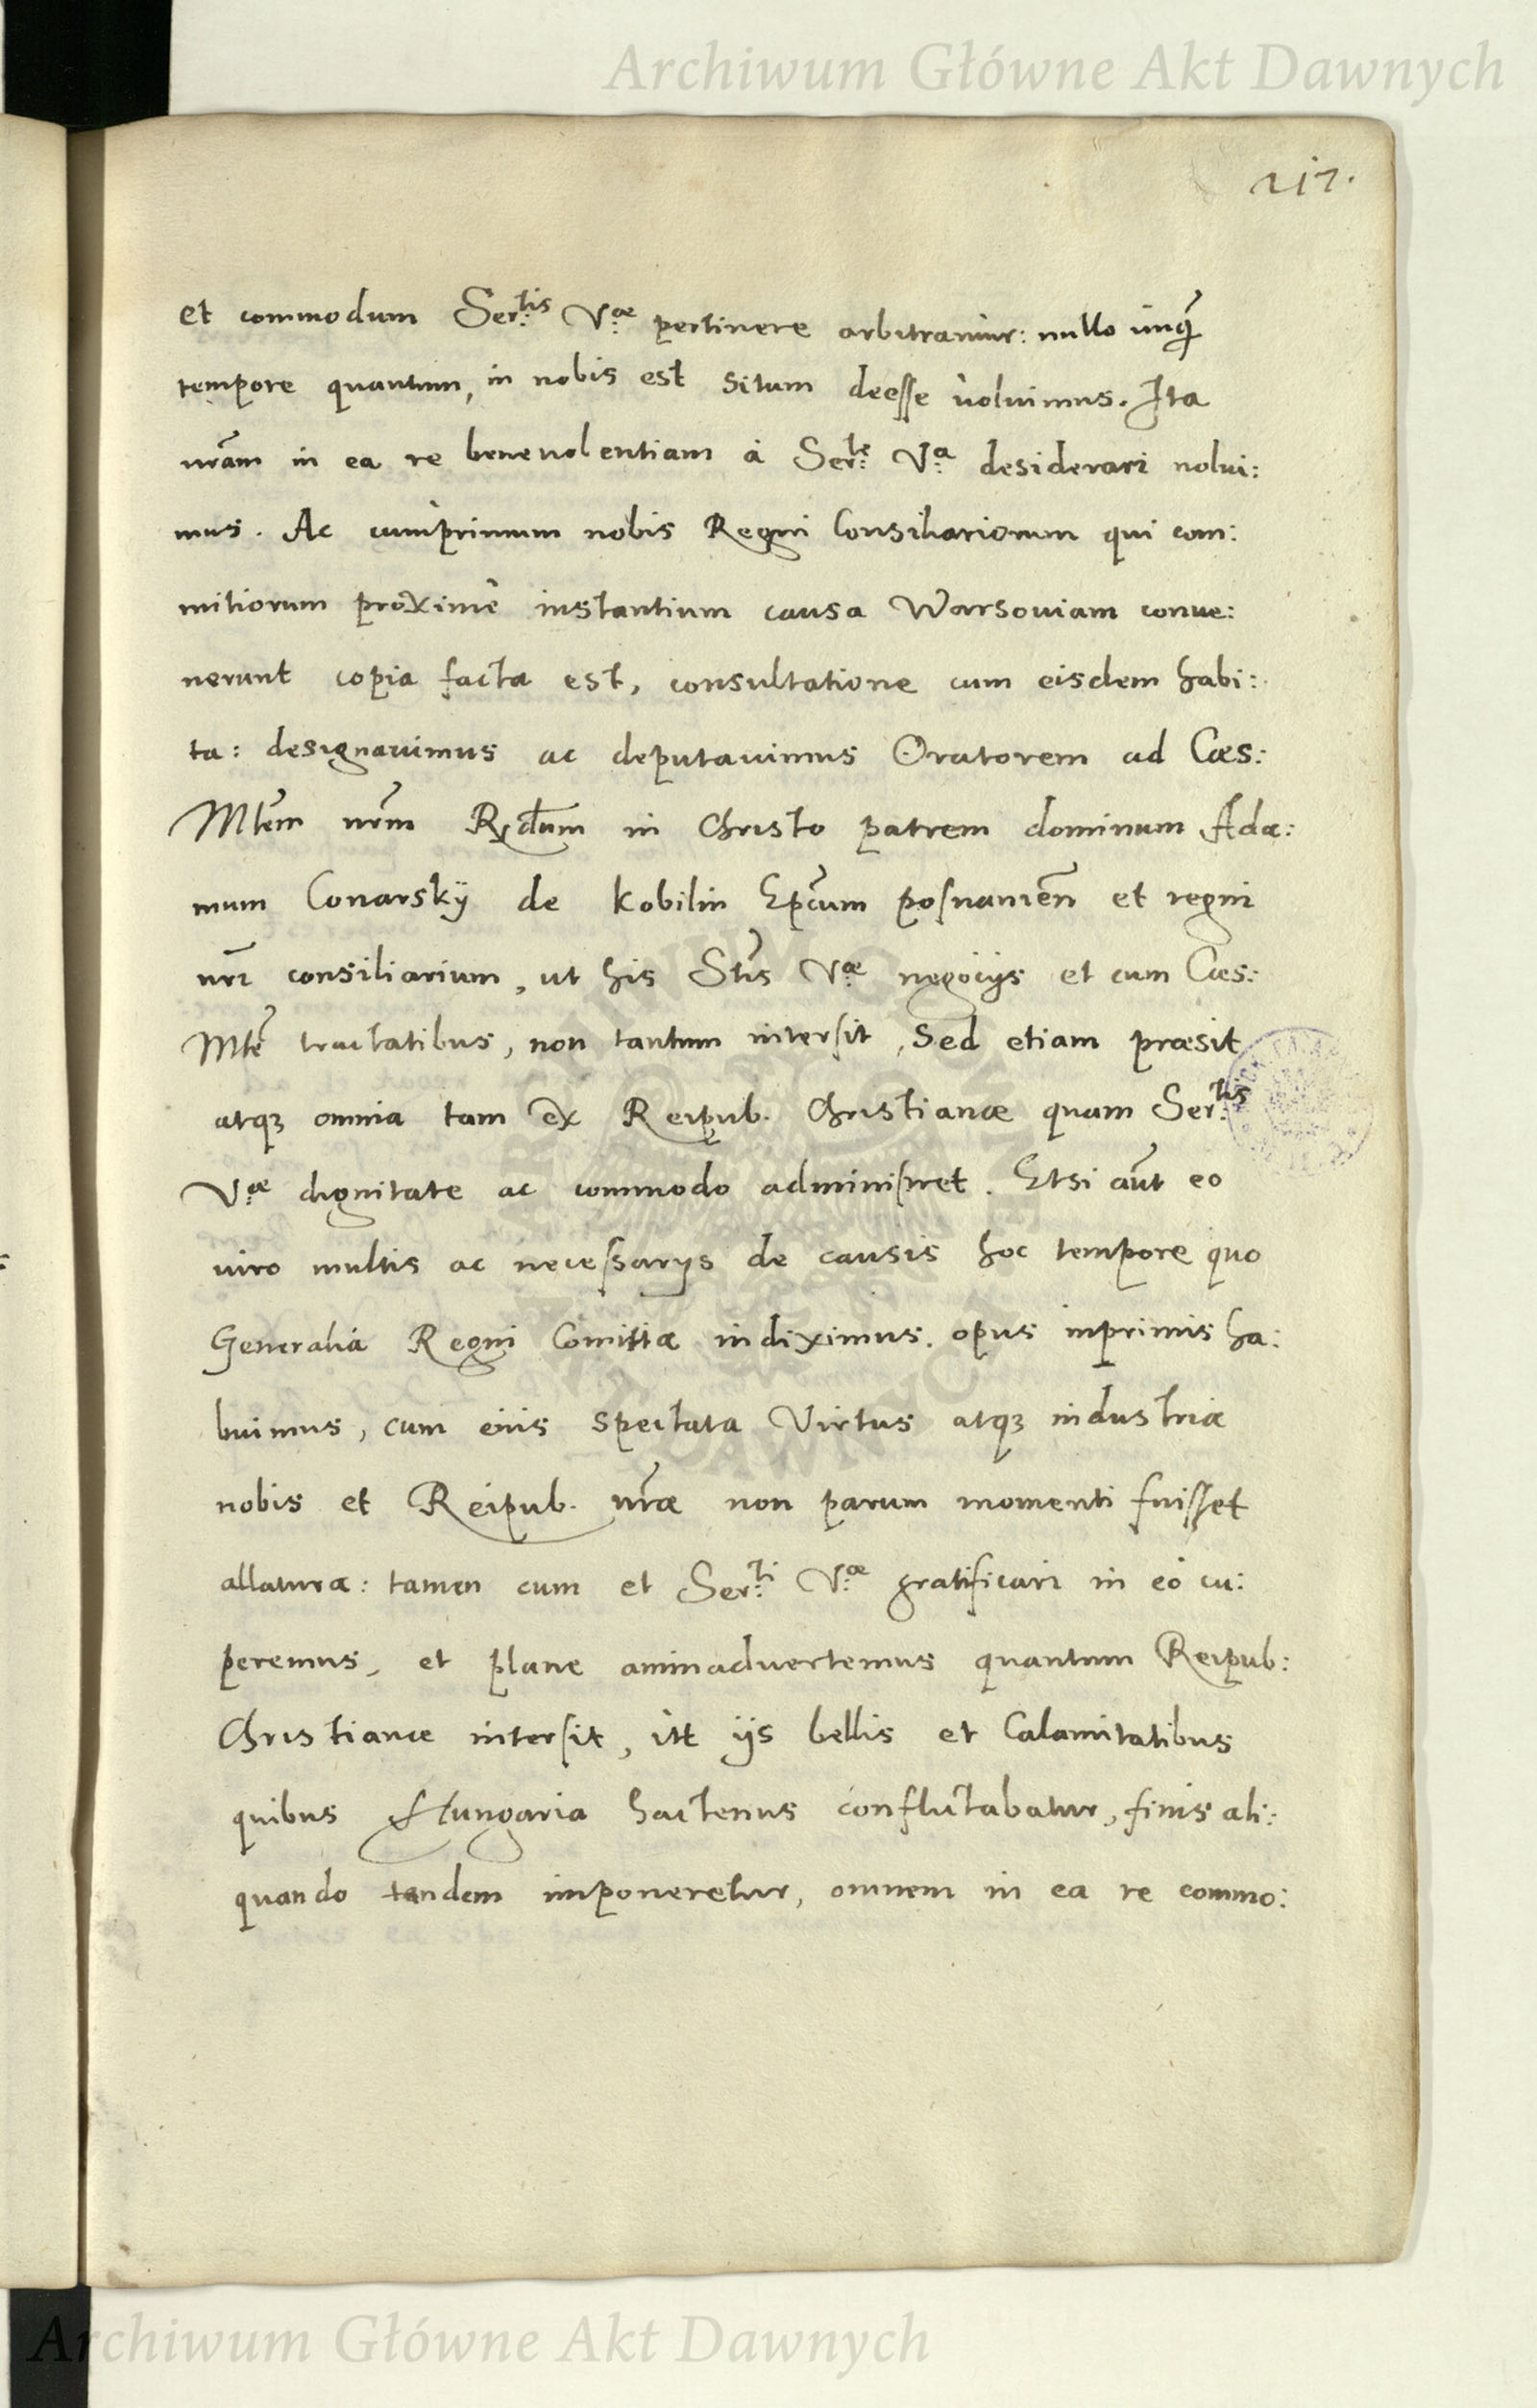 Archiwum Główne Akt Dawnych
217.
et commodum Ser:tis V:ae pertinere arbitramur: nullo unq̃
tempore quantum, in nobis est situm deesse voluimus. Ita
nrãm in ea re benevolentiam à Ser:te V:a desiderari nolui:
mus. Ac cumprimum nobis Regni Consiliariorum qui com:
mitiorum proximè instantium causa Warsoviam conve:
nerunt copia facta est, consultatione cum eisdem habi:
ta: designavimus ac deputavimus Oratorem ad Cæs:
Mtẽm nrm̃ Rd̃um in Christo patrem dominum Ada:
mum Conarskÿ de Kobilin Ep̃cum posnanieñ et regni
nrĩ consiliarium, ut his St̃is V:æ negocijs et cum Cæs:
Mtẽ tractatibus, non tantum intersit, sed etiam præsit
atqꝫ omnia tam ex Reipub. Christianæ quam Ser:tis
V:æ dignitate ac commodo administret. Etsi aũt eo
viro multis ac necessarijs de causis hoc tempore quo
Generalia Regni Comitia indiximus. opus inprimis ha:
buimus, cum eius spectata Virtus atqꝫ industria
nobis et Reipub. nrãe non parum momenti fuisset
allatura: tamen cum et Ser:ti V:æ gratificari in eo cu:
peremus, et plane aminadvertemus quantum Reipub:
Christianæ intersit, ut ijs bellis et Calamitatibus
quibus Hungaria hactenus conflictabatur, finis ali:
quando tandem imponeretur, omnem in ea re commo:
Archiwum Główne Akt Dawnych